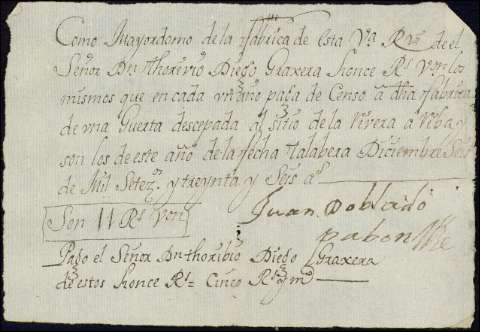 Como Mayordomo de la fabrica de esta Vª Rvi de el
Señor Dn thorivio Diego Graxera honce Rs Von los
mismos que en cada un año paga de Censo a dha fabrica
de una Guerta descepada al sitio de la Rivera a
son los de este año de la fecha talabera Diciembre Seis
de Mil Setezs y treynta y Seis as
Juan Doblado
Son 11 Rs Von
pabon
Pago el Señor Dn thoribio Diego Graxera
de estos honce Rs = Cinco Rs y mº